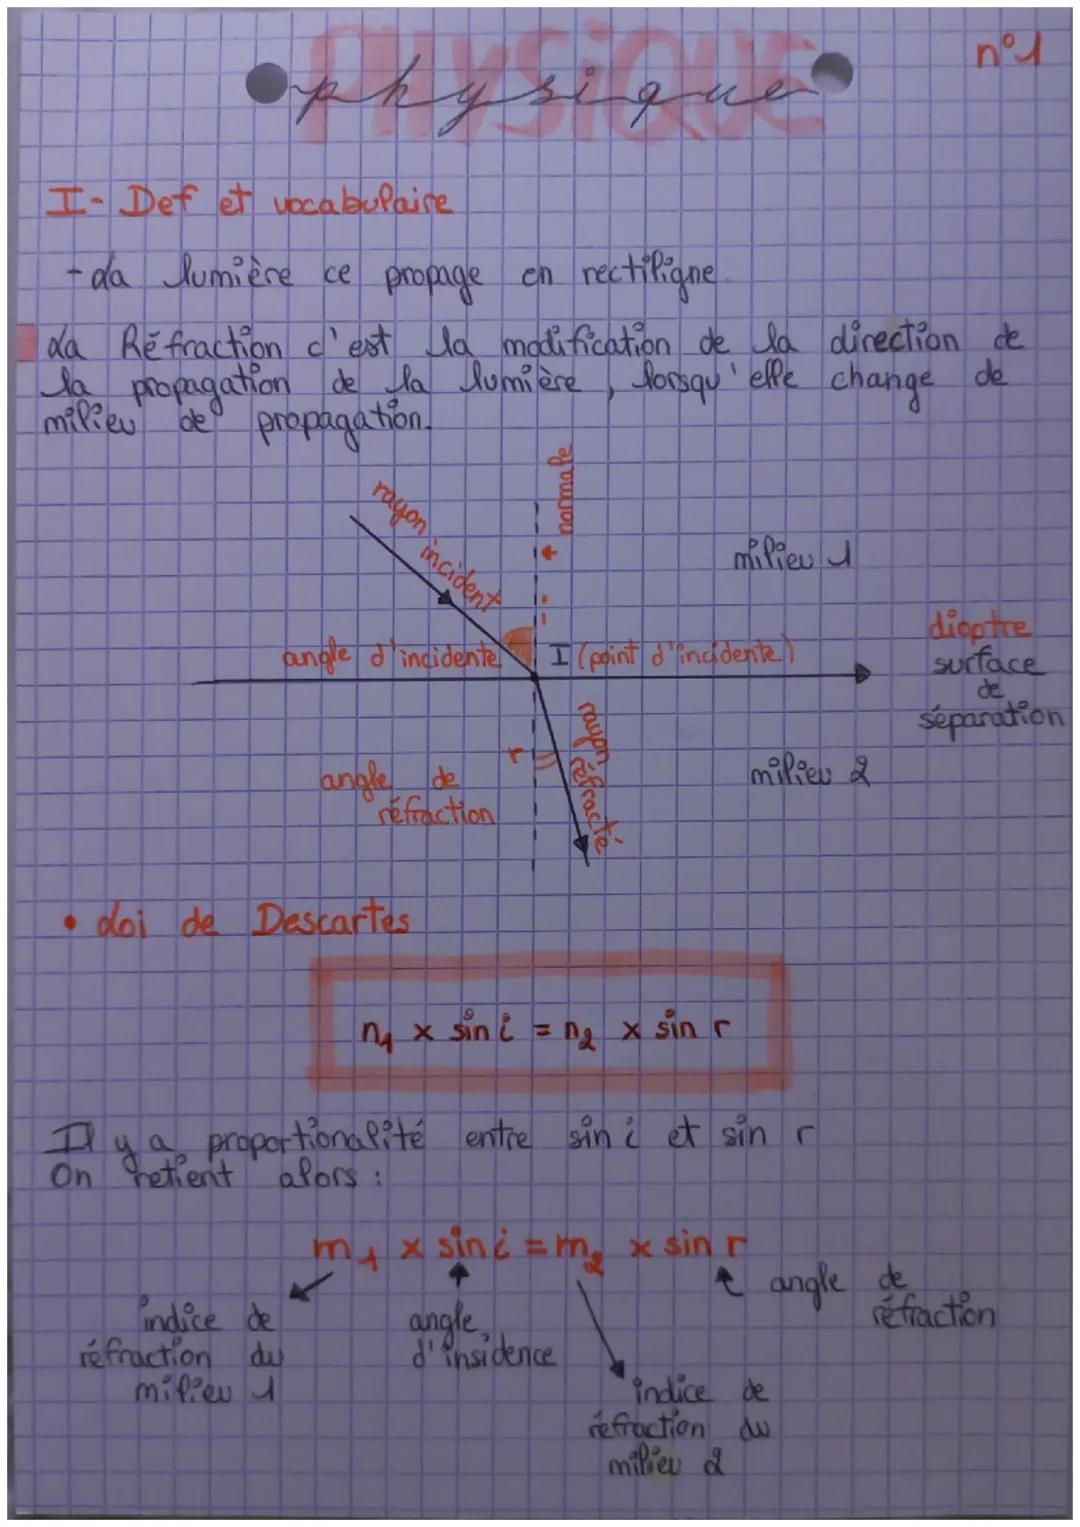 PHYSIQUE
physique
n°1
I- Def et vocabulaire
- La lumière ce propage en rectiligne.
La Réfraction c'est la modification de la direction de
la propagation de la lumière, lorsqu'elle change de
milieu de propagation.
normale
rayon incident
milieu 1
i
dioptre
surface
de
séparation
angle d'incidente
I (point d'incidente)
r
rayon réfracté
milieu 2
angle de
réfraction
• Loi de Descartes
n1 x sin i = n2 x sin r
Il y a proportionalité entre sin i et sin r
On retient alors :
m1 x sin i = m2 x sin r
angle de
réfraction
indice de
réfraction du
milieu 1
angle
d'insidence
indice de
réfraction du
milieu 2